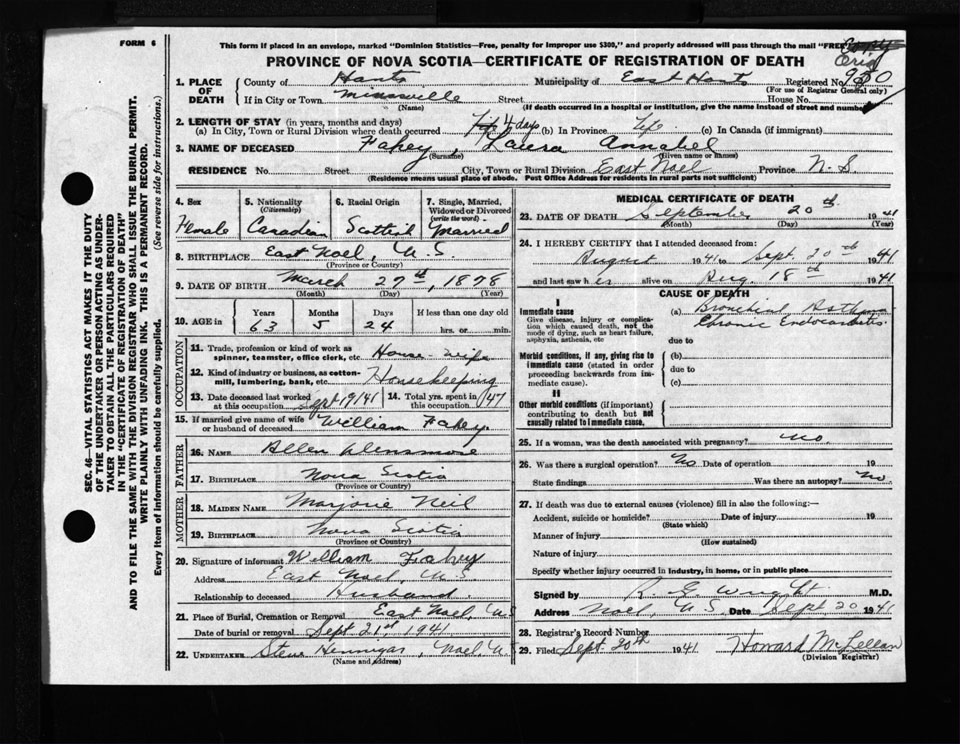 FORM 6
This form if placed in an envelope, marked "Dominion Statistics—Free, penalty for improper use $300," and properly addressed will pass through the mail "FREE
Copy
Orig
PROVINCE OF NOVA SCOTIA—CERTIFICATE OF REGISTRATION OF DEATH
1. PLACE OF DEATH County of Hants Municipality of East Hants Registered No. 930
(For use of Registrar General only)
If in City or Town Minasville Street House No.
(Name) (If death occurred in a hospital or institution, give the name instead of street and number)
2. LENGTH OF STAY (in years, months and days)
(a) In City, Town or Rural Division where death occurred 4 days (b) In Province Life (c) In Canada (if immigrant)
3. NAME OF DECEASED Fahey, Laura Annabel
(Surname) (Given name or names)
RESIDENCE No. Street City, Town or Rural Division East Noel Province N.S.
(Residence means usual place of abode. Post Office Address for residents in rural parts not sufficient)
4. Sex 5. Nationality (Citizenship) 6. Racial Origin 7. Single, Married, Widowed or Divorced (write the word)
Female Canadian Scottish Married
8. BIRTHPLACE East Noel, N.S.
(Province or Country)
9. DATE OF BIRTH March 27th, 1878
(Month) (Day) (Year)
10. AGE in Years Months Days If less than one day old
63 5 24 hrs. or min.
OCCUPATION
11. Trade, profession or kind of work as spinner, teamster, office clerk, etc. House-wife
12. Kind of industry or business, as cotton-mill, lumbering, bank, etc. Housekeeping
13. Date deceased last worked at this occupation Sept 19/41 14. Total yrs. spent in this occupation 47
15. If married give name of wife or husband of deceased William Fahey
FATHER
16. NAME Allen Densmore
17. BIRTHPLACE Nova Scotia
(Province or Country)
MOTHER
18. MAIDEN NAME Marjorie Neil
19. BIRTHPLACE Nova Scotia
(Province or Country)
20. Signature of informant William Fahey
Address East Noel, N.S.
Relationship to deceased Husband
21. Place of Burial, Cremation or Removal East Noel, N.S.
Date of burial or removal Sept 21st, 1941
22. UNDERTAKER Steve Hennigar, Noel N.S.
(Name and Address)
MEDICAL CERTIFICATE OF DEATH
23. DATE OF DEATH September 20th 1941
(Month) (Day) (Year)
24. I HEREBY CERTIFY that I attended deceased from:
August 1941 to Sept. 20th 1941
and last saw her alive on Aug. 18th 1941
CAUSE OF DEATH
I
Immediate cause
Give disease, injury or complication which caused death, not the mode of dying, such as heart failure, asphyxia, asthenia, etc
(a) Bronchial Asthma
Chronic Endocarditis
due to
Morbid conditions, if any, giving rise to immediate cause (stated in order proceeding backwards from immediate cause).
(b)
due to
(c)
II
Other morbid conditions (if important) contributing to death but not causally related to immediate cause.
25. If a woman, was the death associated with pregnancy? No
26. Was there a surgical operation? No Date of operation 19
State findings Was there an autopsy? No
27. If death was due to external causes (violence) fill in also the following:
Accident, suicide or homicide? Date of injury 19
(State which)
Manner of injury
(How sustained)
Nature of injury
Specify whether injury occurred in industry, in home, or in public place
Signed by R. E. Wright M.D.
Address Noel N.S. Date Sept 20 1941
28. Registrar's Record Number
29. Filed Sept. 20th 1941 Howard McLellan
(Division Registrar)
SEC. 46—VITAL STATISTICS ACT MAKES IT THE DUTY
OF THE UNDERTAKER OR PERSON ACTING AS UNDER-
TAKER TO OBTAIN ALL THE PARTICULARS REQUIRED
IN THE "CERTIFICATE OF REGISTRATION OF DEATH"
AND TO FILE THE SAME WITH THE DIVISION REGISTRAR WHO SHALL ISSUE THE BURIAL PERMIT.
WRITE PLAINLY WITH UNFADING INK. THIS IS A PERMANENT RECORD.
Every item of information should be carefully supplied. (See reverse side for instructions.)